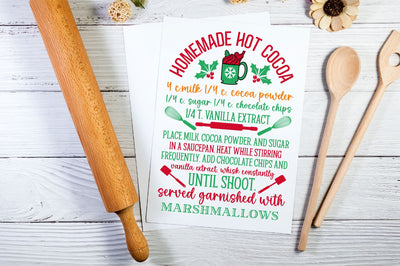 HOMEMADE HOT COCOA
4 c.milk 1/4 c. cocoa powder
1/4 c. sugar 1/4 c. chocolate chips
1/4 T. VANILLA EXTRACT
PLACE MILK, COCOA POWDER, AND SUGAR
IN A SAUCEPAN. HEAT WHILE STIRRING
FREQUENTLY. ADD CHOCOLATE CHIPS AND
vanilla extract. whisk constantly
UNTIL SHOOT.
served garnished with
MARSHMALLOWS